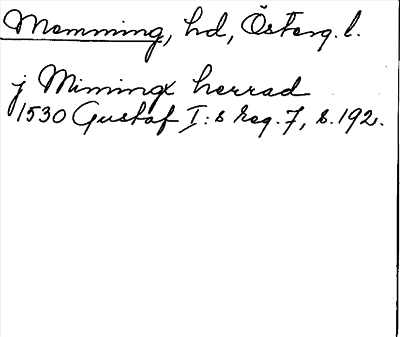 Memming, hd, Österg. l.
j Mimingx herrad
1530 Gustaf I:s Reg. 7, s. 192.